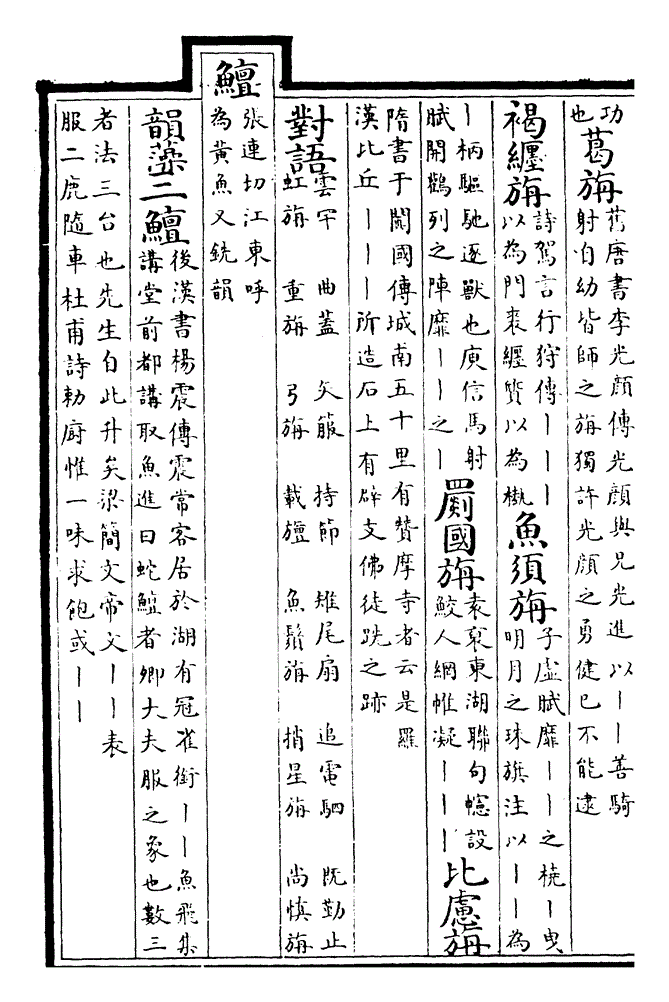 功
也
葛旃
舊唐書李光顏傳光顏與兄光進以丨丨善騎
射自幼皆師之旃獨許光顏之勇健己不能逮
褐纏旃
詩駕言行狩傳丨丨丨
以為門裘纏質以為槸
魚須旃
子虛賦靡丨丨之橈丨曳
明月之珠旗注以丨丨為
丨柄驅馳逐獸也庾信馬射
賦開鶴列之陣靡丨丨之丨
罽國旃
袁裒東湖聯句幰設
鮫人網帷凝丨丨丨
比慮旃
隋書于闐國傳城南五十里有贊摩寺者云是羅
漢比丘丨丨丨所造石上有辟支佛徒跣之跡
對語
雲罕 曲蓋 矢箙 持節 雉尾扇 追電駟 既勤止
虹旃 重旃 弓旃 載旜 魚鬚旃 捎星旃 尚慎旃
鱣
張連切江東呼
為黃魚又銑韻
韻藻二鱣
後漢書楊震傳震常客居於湖有冠雀銜丨丨魚飛集
講堂前都講取魚進曰蛇鱣者卿大夫服之象也數三
者法三台也先生自此升矣梁簡文帝文丨丨表
服二鹿隨車杜甫詩勅廚惟一味求飽或丨丨